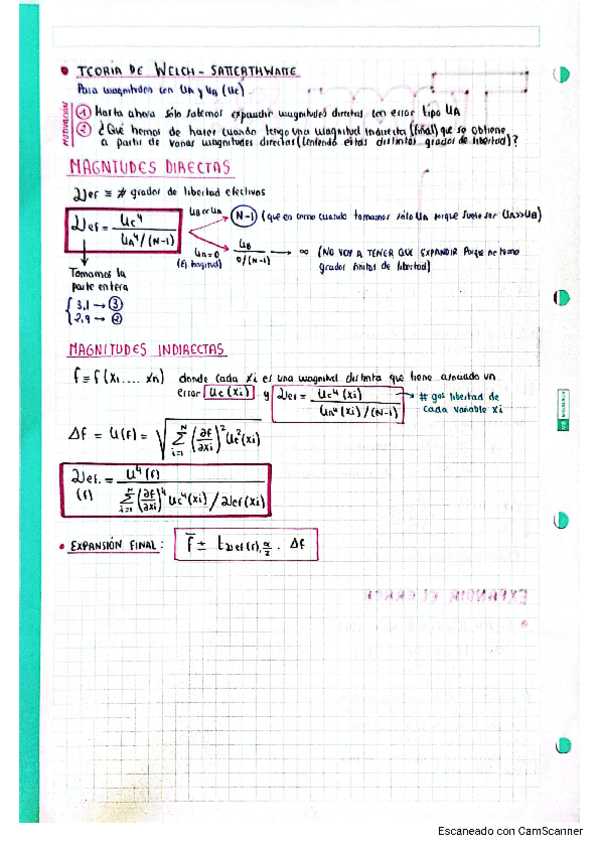 • TEORÍA DE WELCH - SATTERTHWAITE
Para magnitudes con UA y UB (Uc).
MOTIVACIÓN
① Hasta ahora sólo sabemos expandir magnitudes directas con error tipo UA
② ¿Qué hemos de hacer cuando tengo una magnitud indirecta (final) que se obtiene
a partir de varias magnitudes directas (teniendo éstas distintos grados de libertad)?
MAGNITUDES DIRECTAS
νef ≡ # grados de libertad efectivos
νef = Uc⁴ / (UA⁴/(N-1))
UB<<UA (N-1) (que es como cuando tomamos sólo UA porque suele ser UA>>UB)
UA=0 UB / (0/(N-1)) → ∞ (NO VOY A TENER QUE EXPANDIR Porque no tengo
grados finitos de libertad)
Tomamos la
parte entera
{ 3,1 → ③
2,9 → ②
MAGNITUDES INDIRECTAS
f ≡ f (x₁ .... xn) donde cada xi es una magnitud distinta que tiene asociado un
error Uc(xi) y νef = Uc⁴(xi) / (UA⁴(xi)/(N-1)) → # gos libertad de
cada variable xi
Δf = U(f) = √( Σ i=1 N (∂f/∂xi)² Uc²(xi) )
νef. (f) = U⁴(f) / ( Σ i=1 N (∂f/∂xi)⁴ Uc⁴(xi) / νef(xi) )
• EXPANSIÓN FINAL: f̄ ± t νef(f), α/2 · Δf
Escaneado con CamScanner